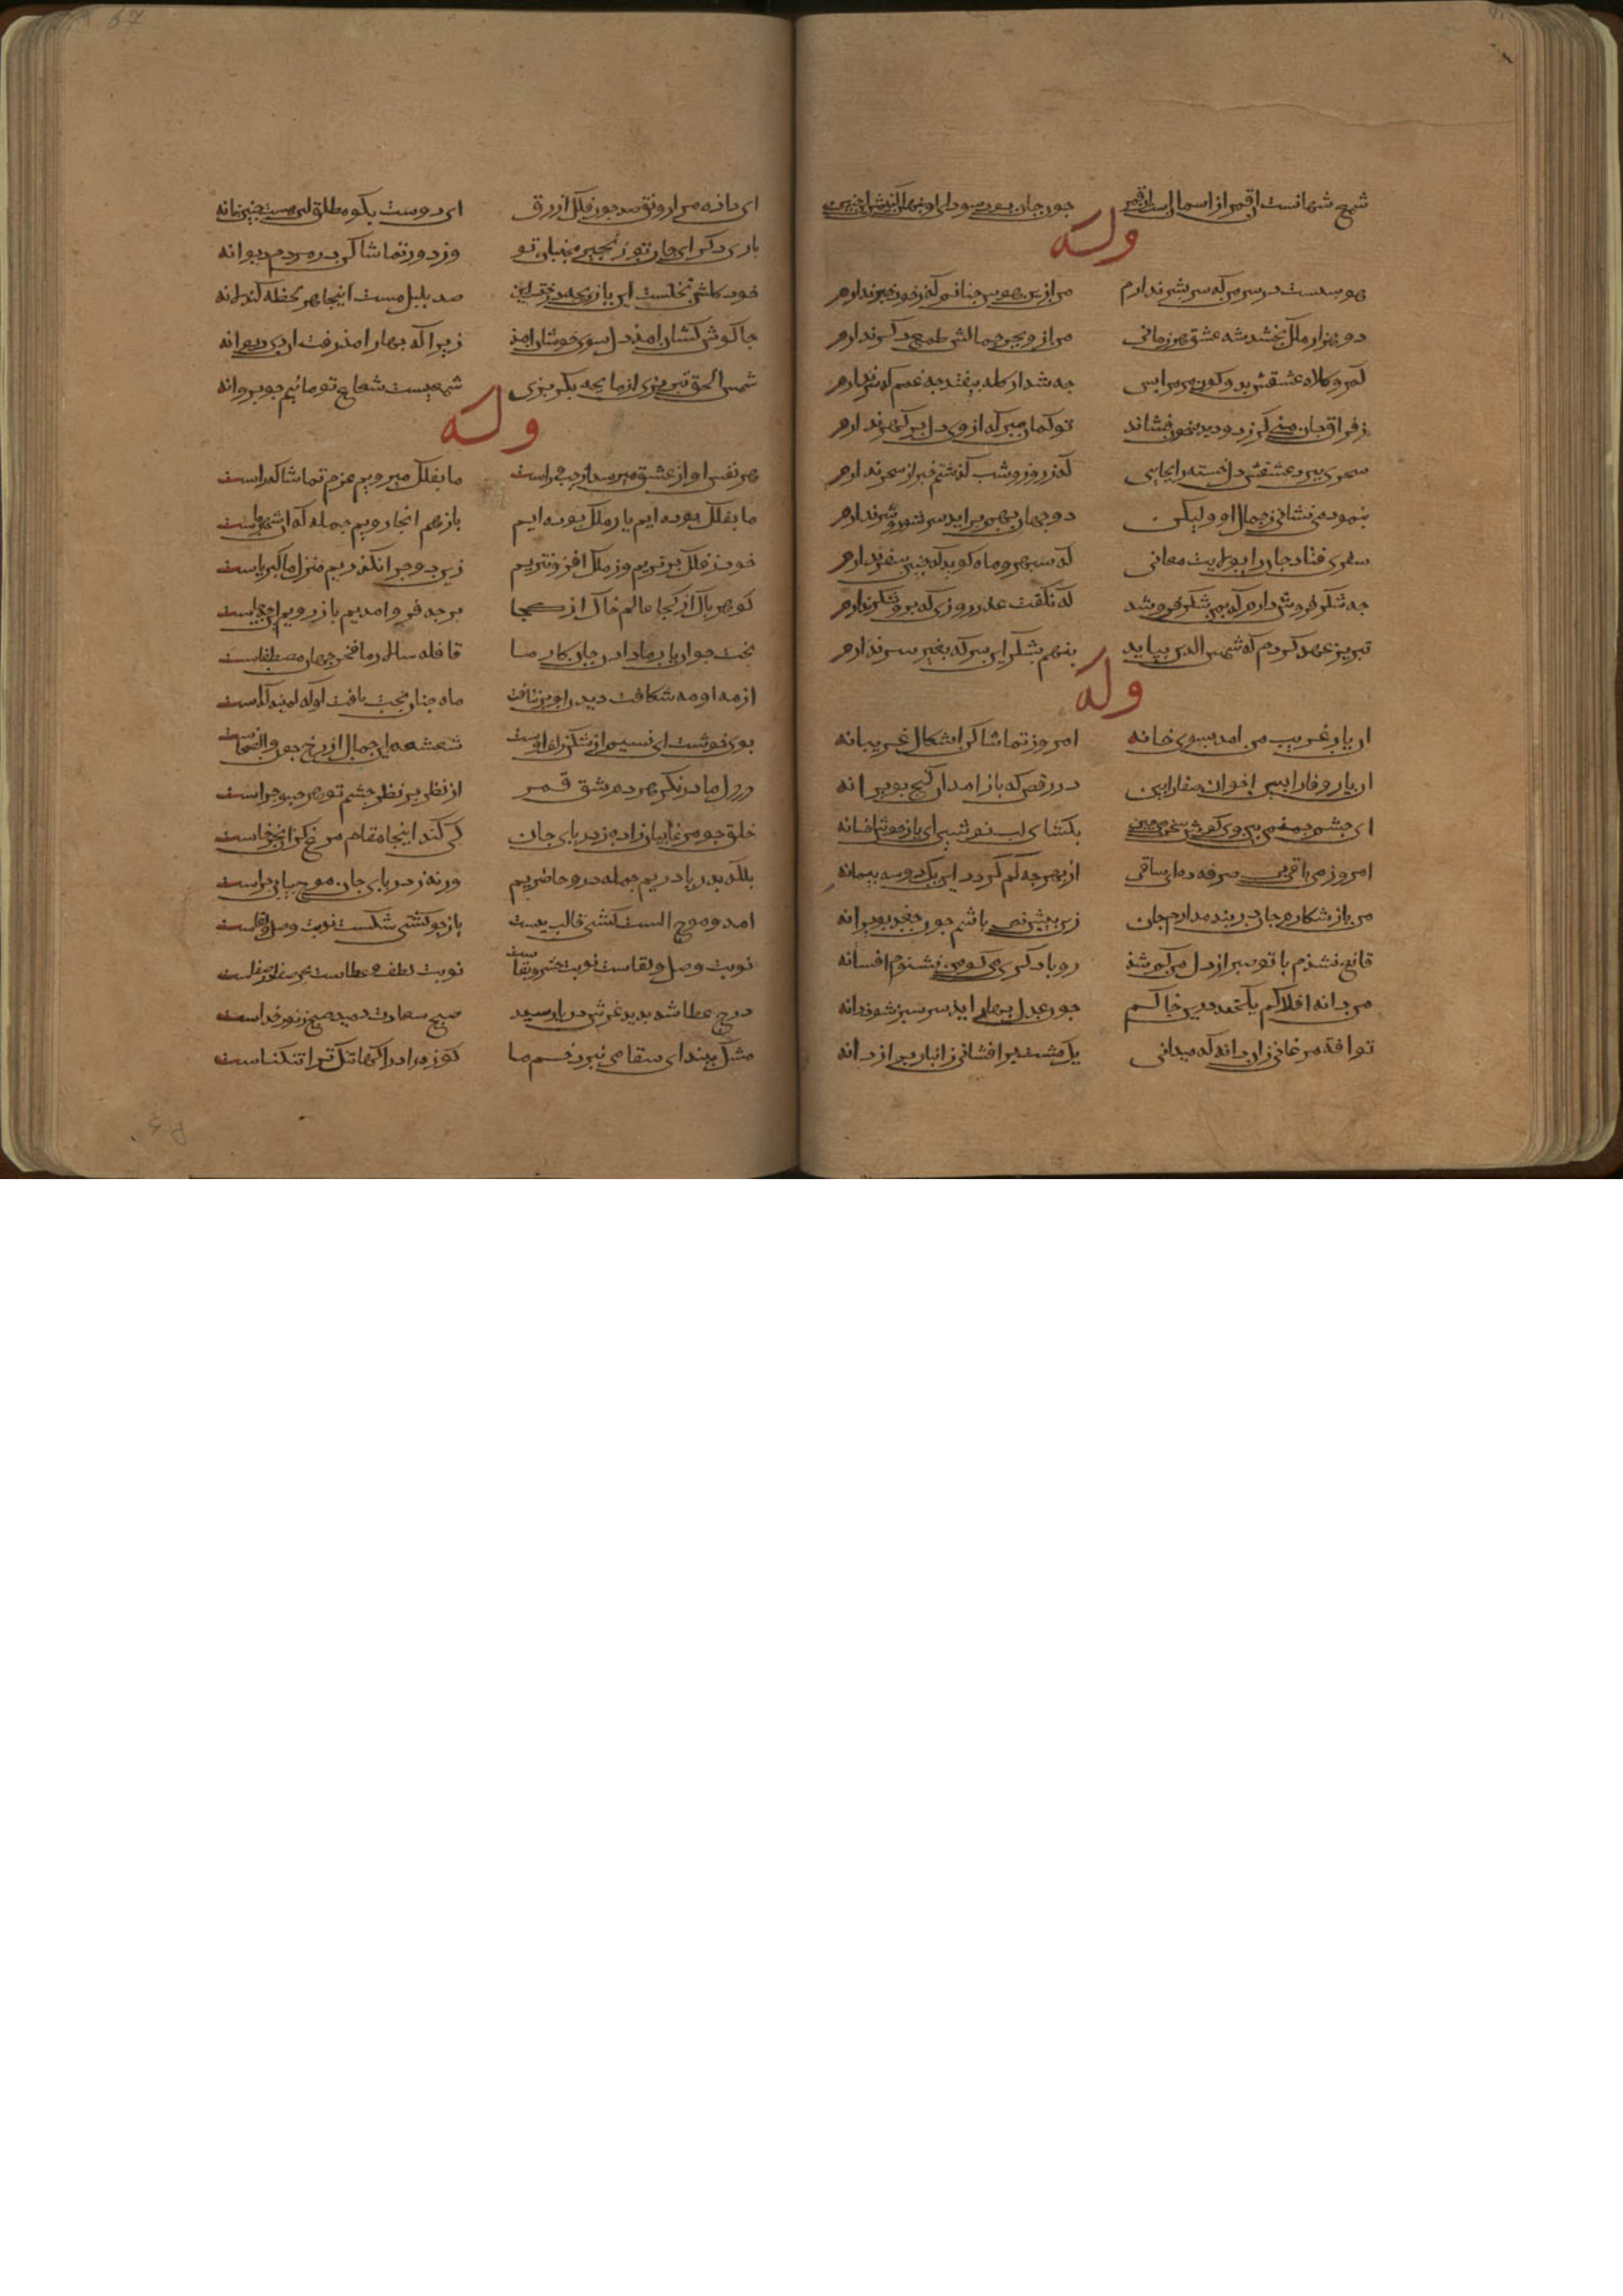 شمع شهانست
وله
هوسست در سر من که سر بشر ندارم من ازین هوس جنانم که زخود خبر ندارم
دو هزار ملک بخشد شه عشق هر زمانی من ازو بجز جمالش طمعی دکر ندارم
کمر و کلاه عشقش بدو کون مر مرا بس جه شد ار کله بیفتد جه غم کمر ندارم
تو کمان مبر که از وی دل بر کهر ندارم
سحری ببرد عشقش دل خسته را بجایی که ز روز و شب کذشتم خبر از سحر ندارم
بنموده می نشانی ز جمال او ولیکن دو جهان بهم براید سر شور و شر ندارم
سفری فتاد جان را بولایت معانی که سبهر و ماه کوید که جنین سفر ندارم
جه شکر فروش دارم که بمن شکر فروشد که نکفت عذر روزی که برو شکر ندارم
تبریز عهد کردم که شمس الدین بیاید بنهم بشکر این سر که بغیر سر ندارم
وله
ان یار غریب من امد بسوی خانه امروز تماشا کن اشکال غریبانه
ان یار وفا را بین اخوان صفا را بین در رقص که باز امد ان کنج بویرانه
ای جشم جمن می بین وی کوش سخن می جین بکشای لب نوشین ای یار خوش افسانه
امروز می باقی بی صرفه ده ای ساقی از بحر جه کم کردد این یک دو سه بیمانه
من باز شکارم جان در بند مدارم جان زین بیش نمی باشم جون جغد بویرانه
قانع نشدم با تو صبر از دل من کم شد رو با دکری می کو من نشنوم افسانه
من دانه افلاکم یکجند درین خاکم جون عدل بهار اید سرسبز شود دانه
تو افه مرغانی زان دانه که میدانی یک مشت بر افشانی زانبار بر از دانه
ای داده مرا رونق صد جون فلک ازرق ای دوست بکو مطلق این هست جنین یا نه
باری دکر ای جان تو زنجیر بجنبان تو وز دور تماشا کن در مردم دیوانه
خود کلشن بختست این یا رب جه درختست این صد بلبل مست اینجا هر لحظه کند لانه
جان کوش کشان امد دل سوی خوشان امد زیرا که بهار امد رفت ان دی بیکانه
شمس الحق تبریزی از ما بجه بکریزی شمعیست شعاع تو ماییم جو بروانه
وله
هر نفس اواز عشق میرسد از جب و راست ما بفلک میرویم عزم تماشا کراست
ما بفلک بوده ایم یار ملک بوده ایم باز هم انجا رویم جمله که ان شهر ماست
خود ز فلک برتریم وز ملک افزونتریم زین دو جرا نکذریم منزل ما کبریاست
کوهر باک از کجا عالم خاک از کجا بر جه فرو امدیم باز رویم این جه جاست
بخت جوان یار ما دادن جان کار ما قافله سالار ما فخر جهان مصطفاست
از مه او مه شکافت دیدن او بر نتافت ماه جنان بخت یافت او که کمینه کداست
بوی خوشست ای نسیم از شکن زلف اوست شعشعه این جمال از رخ جون والضحاست
در دل ما در نکر هر دم شق قمر از نظر بر نظر جشم تو هر سو جراست
خلق جو مرغابیان زاده ز دریای جان کی کند اینجا مقام مرغ کزان بحر خاست
بلکه بدریا دریم جمله درو حاضریم ورنه ز دریای جان موج بیابی جراست
امد و موج الست کشتی قالب ببست باز جو کشتی شکست نوبت وصل و لقاست
نوبت وصل و لقاست نوبت حشر و بقاست نوبت لطف و عطاست بحر صفا در صفاست
درج عطا شد بدید غرش دریا رسید صبح سعادت دمید صبح ز نور خداست
مشک ببند ای سقا می نبرد خم ما کوزه ادراکها تنک ترا تنکناست